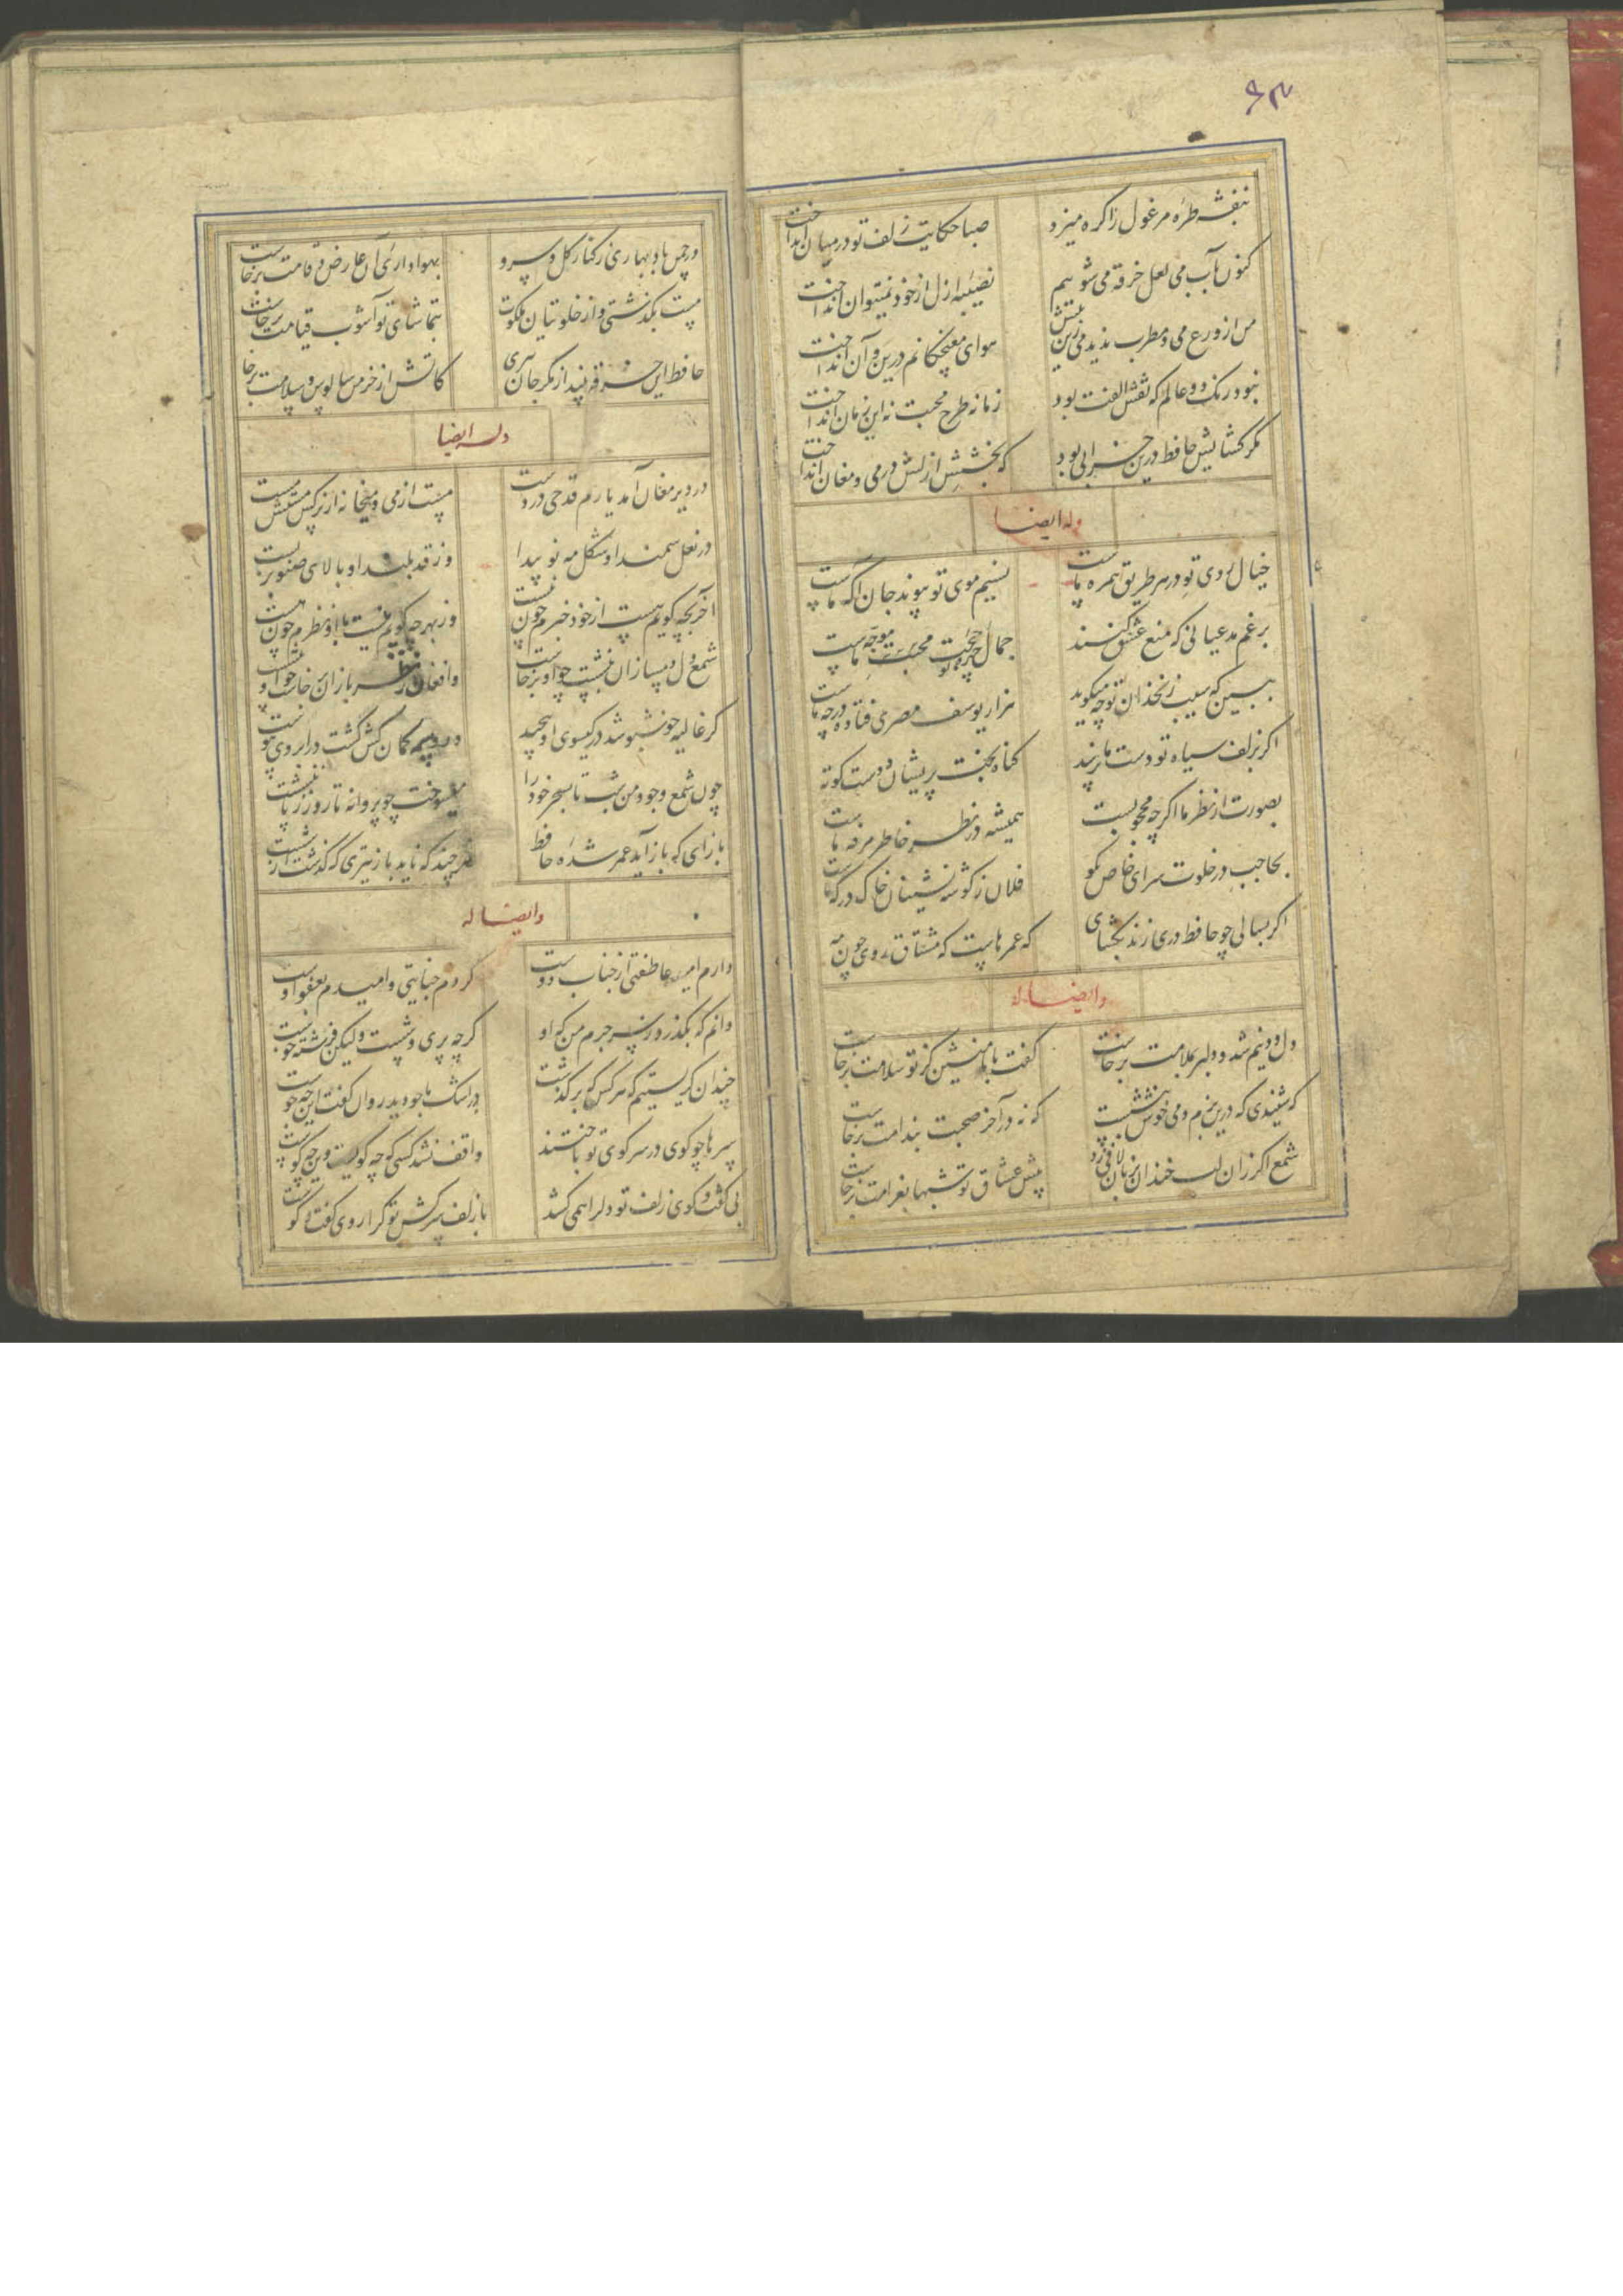 ۶۳
بنفشه طره مرغول را کره میزد
صبا حکایت زلف تو در میان انداخت
کنون بآب می لعل خرقه می شویم
نصیبه ازل از خود نمیتوان انداخت
من از ورع می و مطرب ندیدمی زین پیش
هوای مغبچکانم درین و آن انداخت
نبود رنک دو عالم که نقش الفت بود
زمانه طرح محبت نه این زمان انداخت
مکر کشایش حافظ درین خرابی بود
که بخشش ازلش در می و مغان انداخت
وله ایضا
خیال روی تو در هر طریق همره ماست
نسیم موی تو پیوند جان آکه ماست
برغم مدعیانی که منع عشق کنند
جمال چهره تو حجت موجه ماست
ببین که سیب زنخدان تو چه میکوید
هزار یوسف مصری فتاده در چه ماست
اکر بزلف سیاه تو دست ما نرسد
کناه بخت پریشان و دست کوته
بصورت از نظر ما اکرچه محجوبست
همیشه در نظر خاطر مرفه ماست
بحاجب در خلوت سرای خاص بکو
فلان ز کوشه نشینان خاک درکه ماست
اکر بسالی چو حافظ دری زند بکشای
که عمرهاست که مشتاق روی چون مه
وایضا له
دل و دینم شد و دلبر بملامت برخاست
کفت با ما منشین کز تو سلامت برخاست
که شنیدی که درین بزم دمی خوش بنشست
که نه در آخر صحبت بندامت برخاست
شمع اکر زان لب خندان بزبان لافی زد
پیش عشاق تو شبها بغرامت برخاست
در چمن باد بهاری ز کنار کل و سرو
بهواداری آن عارض و قامت برخاست
مست بکذشتی و از خلوتیان ملکوت
بتماشای تو آشوب قیامت برخاست
حافظ این خرقه بینداز مکر جان ببری
کاتش از خرمن سالوس و سلامت برخا
وله ایضا
در دیر مغان آمد یارم قدحی در دست
مست از می و میخانه از نرکس مستش مست
در نعل سمند او شکل مه نو پیدا
وز قد بلند او بالای صنوبر پست
آخر بچه کویم هست از خود خبرم چون نیست
وز بهر چه کویم نیست با او نظرم چون هست
شمع دل دمسازان بنشست چو او برخاست
وافغان ز نظربازان برخاست چو او بنشست
کر غالیه خوشبو شد در کیسوی او پیچید
ور وسمه کمان کش کشت در ابروی او پیوست
چون شمع وجود من شب تا بسحر خود را
میسوخت چو پروانه تا روز ز پا ننشست
بازآی که بازآید عمر شده حافظ
هر چند که ناید باز تیری که کذشت از شست
وایضا له
دارم امید عاطفتی از جناب دوست
کردم جنایتی و امیدم بعفو اوست
دانم که بکذرد ز سر جرم من که او
کرچه پری وشست ولیکن فرشته خوست
چندان کریستیم که هر کس که برکذشت
در اشک ما چو دید روان کفت این چه جوست
سرها چو کوی در سر کوی تو باختند
واقف نشد کسی که چه کویست وین چه کوست
بی کفت و کوی زلف تو دل را همی کشد
با زلف سرکش تو کرا روی کفت و کوست